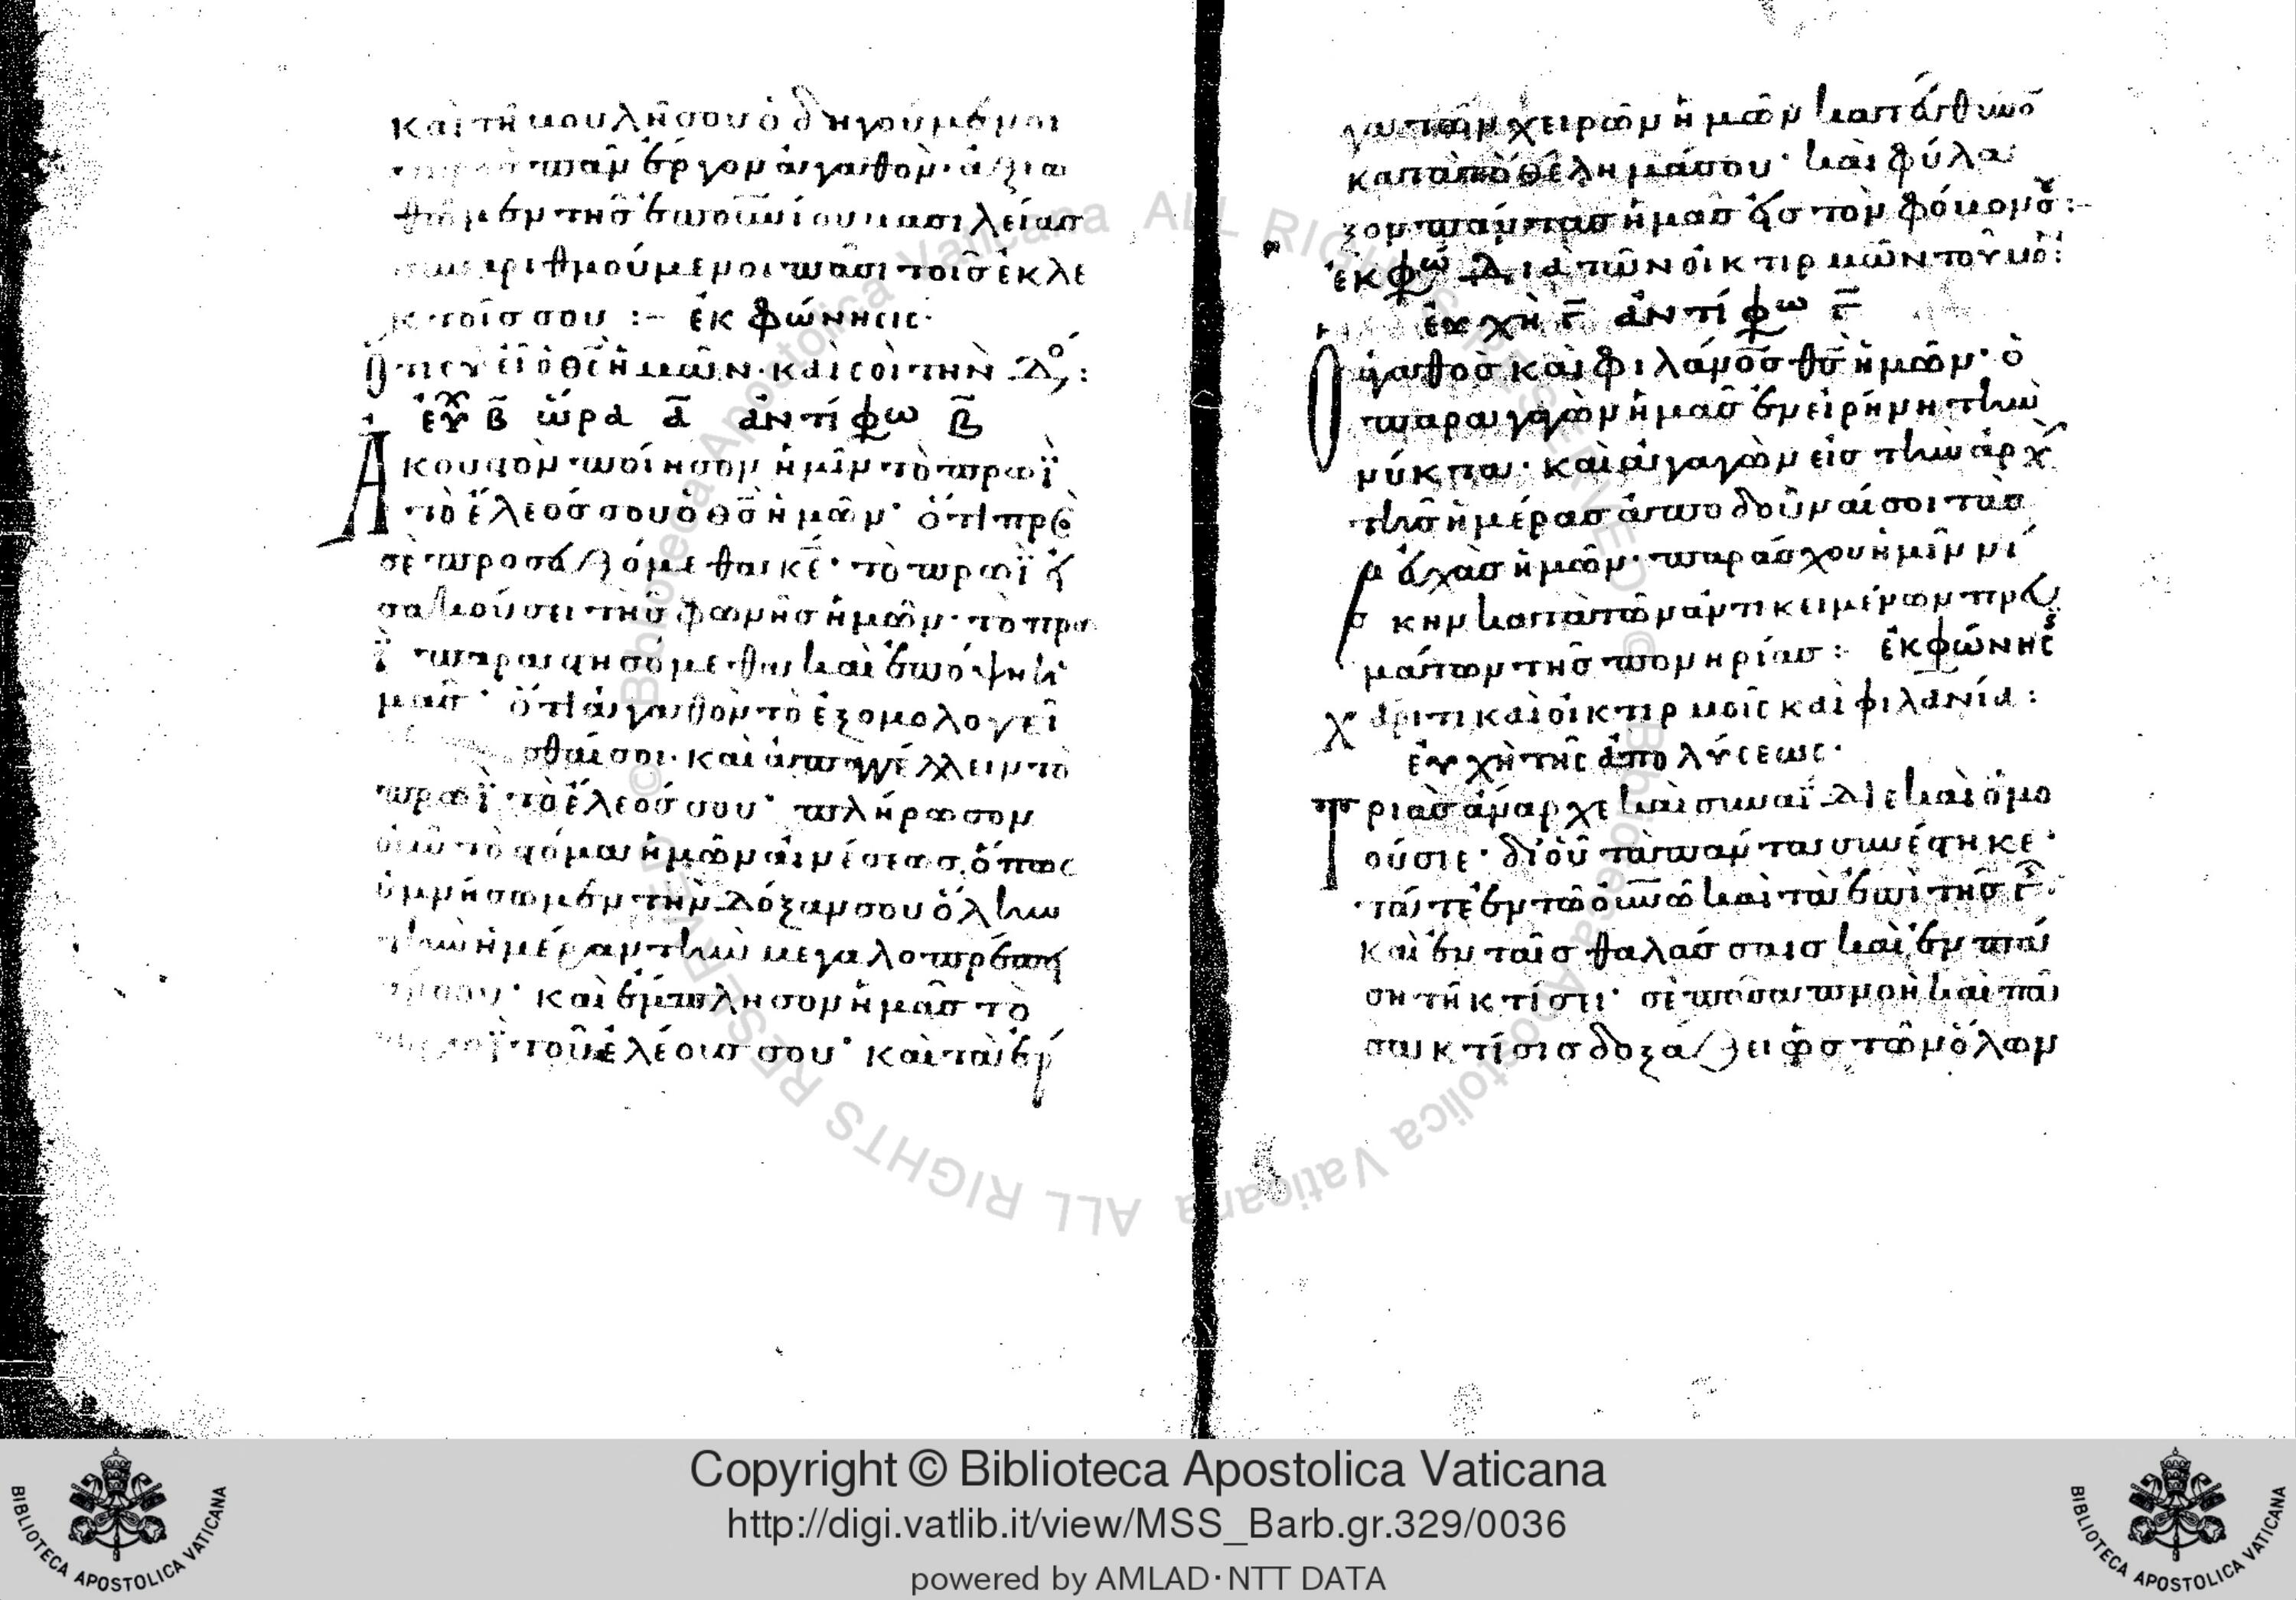 καὶ τῆ βουλῆ σου ὁδηγούμενοι
πᾶν ἔργον ἀγαθὸν· ἀξιω
θῶμεν τῆς ἐπουνίου βασιλείας
συναριθμούμενοι πᾶσι τοῖς ἐκλε
κτοῖς σου :- ἐκφώνησις·
Ὅτι σὺ εἶ ὁ θς ἡμῶν· καὶ σοὶ τὴν δο :
εὐχ β ὥρα α ἀντίφω β
Ἀκουστὸν ποίησον ἡμῖν τὸ πρωῒ
τὸ ἔλεός σου ὁ θς ἡμῶν· ὅτι πρὸς
σὲ προσευξόμεθα κε· τὸ πρωῒ εἰ
σακούσει τῆς φωνῆς ἡμῶν· τὸ πρω
ῒ παραστησόμεθα καὶ ἐπόψῃ ἡ
μᾶς· ὅτι ἀγαθὸν τὸ ἐξομολογεῖ
σθαί σοι· καὶ ἀπαγγέλλειν τὸ
πρωῒ τὸ ἔλεός σου· πλήρωσον
οὖν τὸ στόμα ἡμῶν αἰνέσεως, ὅπως
ὑμνήσωμεν τὴν δόξαν σου ὅλην
τὴν ἡμέραν τὴν μεγαλοπρέπει
άν σου· καὶ ἔμπλησον ἡμᾶς τὸ
πρωῒ τοῦ ἐλέους σου· καὶ τὰ ἔρ
γα τῶν χειρῶν ἡμῶν κατεύθυνο
κατὰ τὸ θέλημά σου· καὶ φύλα
ξον πάντας ἡμᾶς εἰς τὸν φόβον σου :-
ἐκφω Διὰ τῶν οἰκτιρμῶν τοῦ μο :
εὐχὴ γ ἀντίφω γ
Ὁ ἀγαθὸς καὶ φιλάνος θς ἡμῶν· ὁ
παραγαγὼν ἡμᾶς ἐν εἰρήνη τὴν
νύκτα· καὶ ἀγαγὼν εἰς τὴν ἀρχὴ
τῆς ἡμέρας ἀποδοῦναί σοι τὰς
εὐχὰς ἡμῶν· παράσχου ἡμῖν νί
κην κατὰ τῶν ἀντικειμένων πνευ
μάτων τῆς πονηρίας :- ἐκφώνης
Χάριτι καὶ οἰκτιρμοῖς καὶ φιλανία :
εὐχὴ τῆς ἀπολύσεως·
Τριὰς ἄναρχε καὶ συναΐδιε καὶ ὁμο
ούσιε· δι' οὗ τὰ πάντα συνέστηκε·
τά τε ἐν τῶ οὐνῶ καὶ τὰ ἐπὶ τῆς γῆς·
καὶ ἐν ταῖς θαλάσσαις καὶ ἐν πά
ση τῆ κτίσει· σὲ πᾶσα πνοὴ καὶ πᾶ
σα κτίσις δοξάζει ὡς τῶν ὅλων
Copyright © Biblioteca Apostolica Vaticana
http://digi.vatlib.it/view/MSS_Barb.gr.329/0036
powered by AMLAD·NTT DATA
BIBLIOTECA APOSTOLICA VATICANA
BIBLIOTECA APOSTOLICA VATICANA
© Biblioteca Apostolica Vaticana ALL RIGHTS RESERVED © Biblioteca Apostolica Vaticana ALL RIGHTS RESERVED